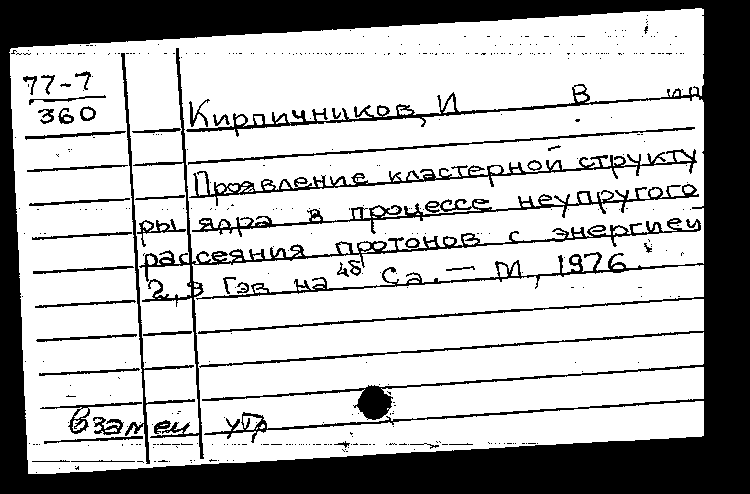 77-7
360
Кирпичников, И В и др
Проявление кластерной структу
ры ядра в процессе неупругого
рассеяния протонов с энергией
2,9 Гэв на 48 Ca. — М, 1976.
Взамен утр